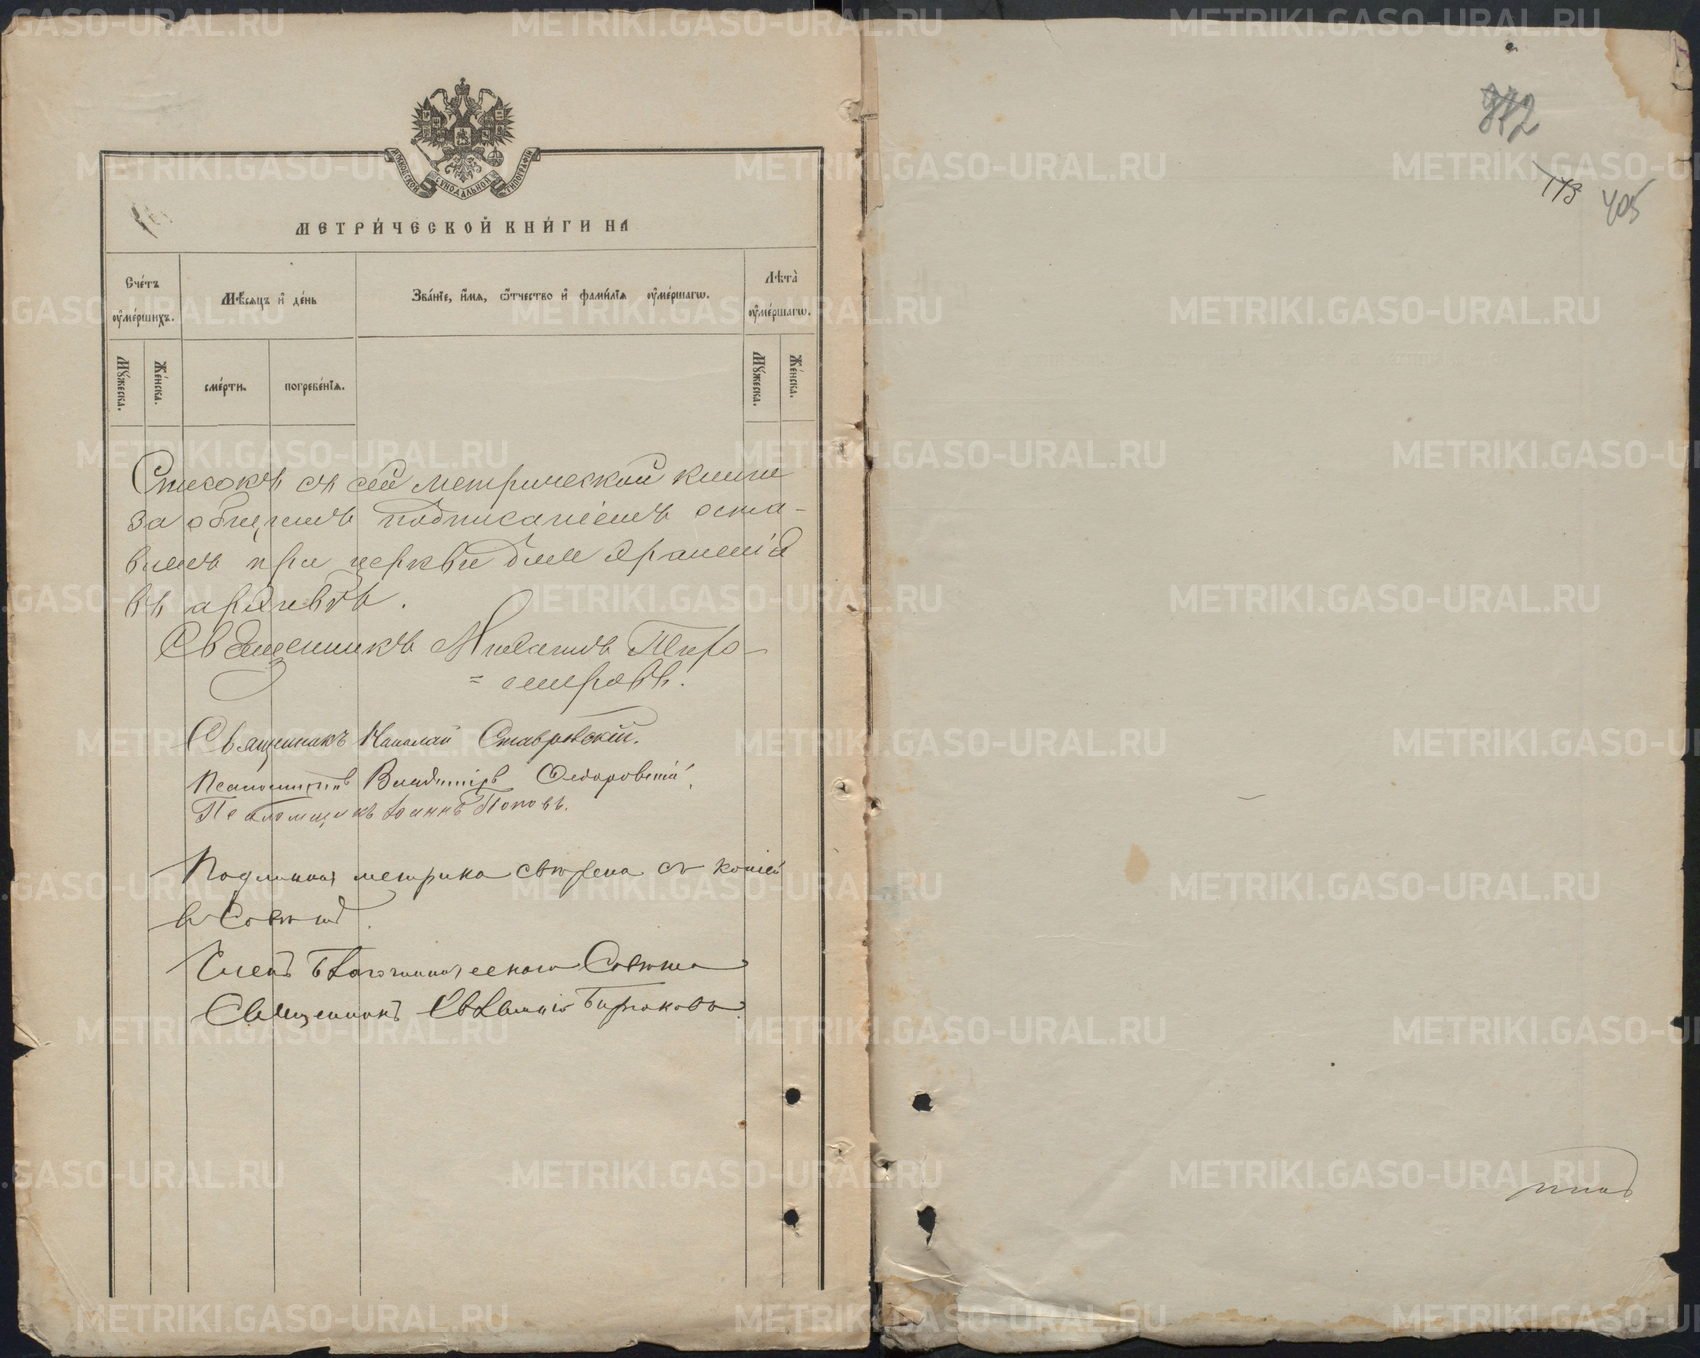 МОСКОВСКОЙ СУНОДАЛЬНОЙ ТИПОГРАФІИ
МЕТРИ́ЧЕСКОЙ КНИ́ГИ НА
Сче́тъ ᲂу҆ме́ршихъ.
Мѣ́сяцъ и҆ де́нь
Зва́нїе, и҆́мя, ѻ҆́тчество и҆ фами́лїя ᲂу҆ме́ршагѡ.
Лѣта̀ ᲂу҆ме́ршагѡ.
Мꙋ́жеска.
Же́нска.
сме́рти.
погребе́нїѧ.
Мꙋ́жеска.
Же́нска.
Списокъ съ сей метрической книги
за общимъ подписаніемъ оста-
вленъ при церкви для храненія
въ архивѣ.
Священникъ Михаилъ Тихо-
= мировъ.
Священникъ Николай Ставровскій.
Псаломщикъ Владиміръ Ѳедоровскій
Псаломщикъ Іоаннъ Поповъ.
Подлинная метрика свѣрена съ копіей
въ Совѣтѣ.
Членъ Благочинническаго Совѣта
Священникъ Евѳимій Бирюковъ
405
METRIKI.GASO-URAL.RU